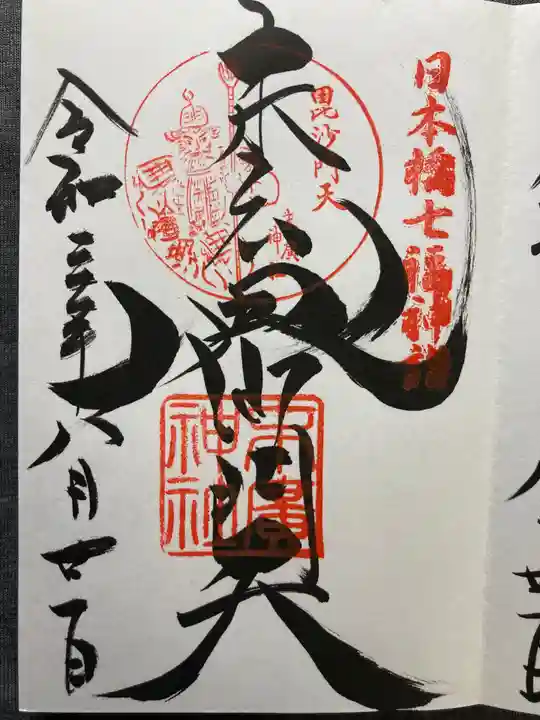 日本橋七福神詣
毘沙門天
末廣毘沙門天
末廣神社
令和三年八月廿一日